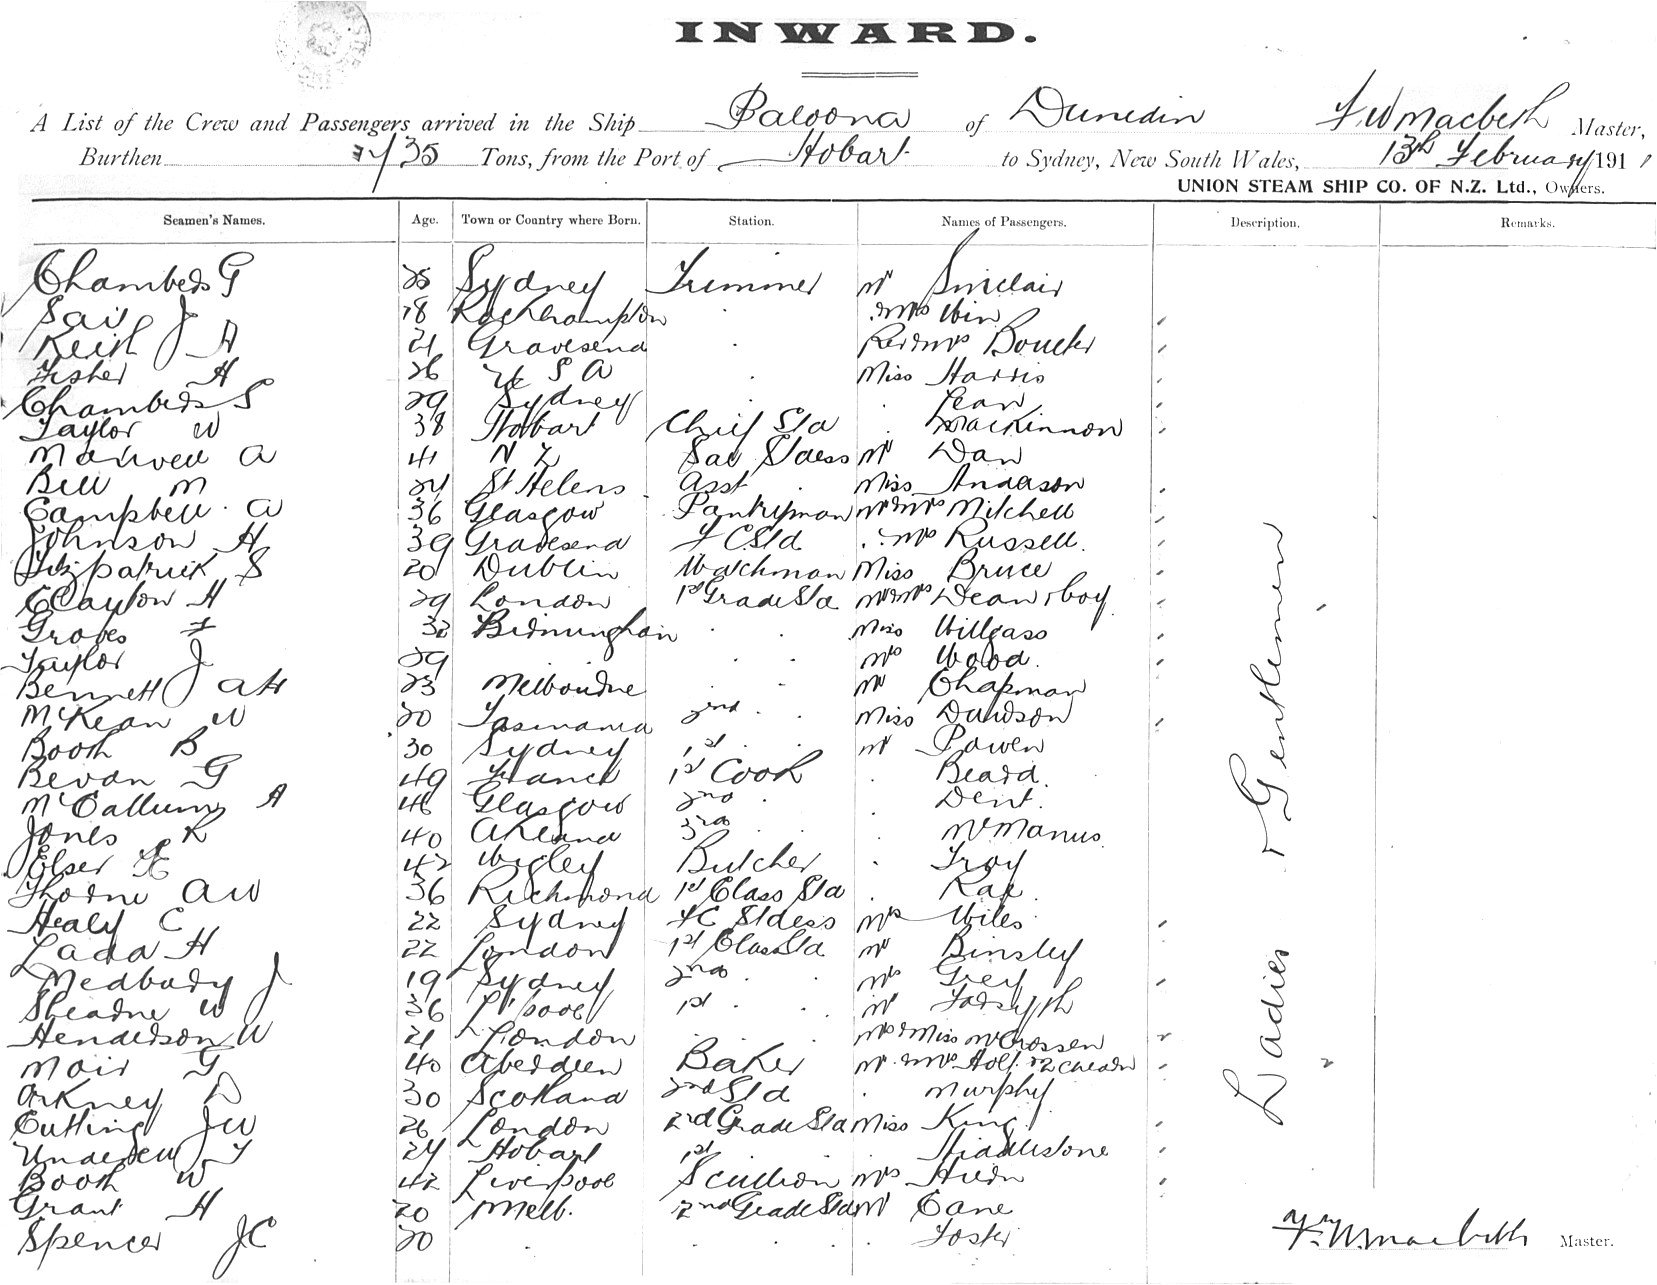 INWARD.
A List of the Crew and Passengers arrived in the Ship Paloona of Dunedin F W Macbeth Master,
Burthen Tons, from the Port of Hobart to Sydney, New South Wales, 13th February 1911
UNION STEAM SHIP CO. OF N.Z. Ltd., Owners.
Seamen's Names. Age. Town or Country where Born. Station. Names of Passengers. Description. Remarks.
Chambers G 25 Sydney Trimmer Mr Sinclair
J 18 Rockhampton . Mrs Win
Keith J A 21 Gravesend . Rev & Mrs
Fisher H 26 U S A . Miss Harris
Chambers S 29 Sydney . .
Taylor W 38 Hobart Chief Std . MacKinnon
Maxwell A 41 N Z Sal Stdess Mr Dan
Bell M 24 St Helens Asst . Miss Anderson
Campbell A 36 Glasgow Pantryman Mr & Mrs Mitchell
Johnson H 39 Gravesend F C Std . & Mrs Russell
Fitzpatrick S 20 Dublin Watchman Miss Bruce
Clayton H 29 London 1st Grade Std Mr & Mrs Dean & boy
Groves F 32 Birmingham . . Miss Willgass
Taylor J 29 . . . . Mrs Wood
Bennett A H 23 Melbourne . . Mr Chapman
McKean W 20 Tasmania 2nd . . Miss Davidson
Booth B 30 Sydney 1st . . Mr Bowen
Bevan G 49 France 1st Cook . Beard
McCallum A 46 Glasgow 2nd . . Dent.
Jones R 40 3rd . . McManus
Elser 42 Wigley Butcher . Troy
Thorne A W 36 Richmond 1st Class Std . Rae
Healy C 22 Sydney F C Stdess Mrs Wiles
Ladd H 22 London 1st Class Std Mr Binsley
Medbury J 19 Sydney 2nd . . Mrs Grey
Shearne W 36 L'pool 1st . . Mr Forsyth
Henderson W 21 London . . Mrs & Miss McCrossen
Moir G 40 Aberdeen Baker Mr & Mrs & 2 Childn
Orkney D 30 Scotland 2nd Std . Murphy
Cutting J W 26 London 2nd Grade Std Miss King
T 24 Hobart 1st . Hiddlestone
Booth W 42 Liverpool Scullion Mrs
Grant H 20 Melb. 2nd Grade Std Mr Cane
Spencer J C 20 . . . . Foster
Ladies & Gentlemen
F. W. Macbeth Master.